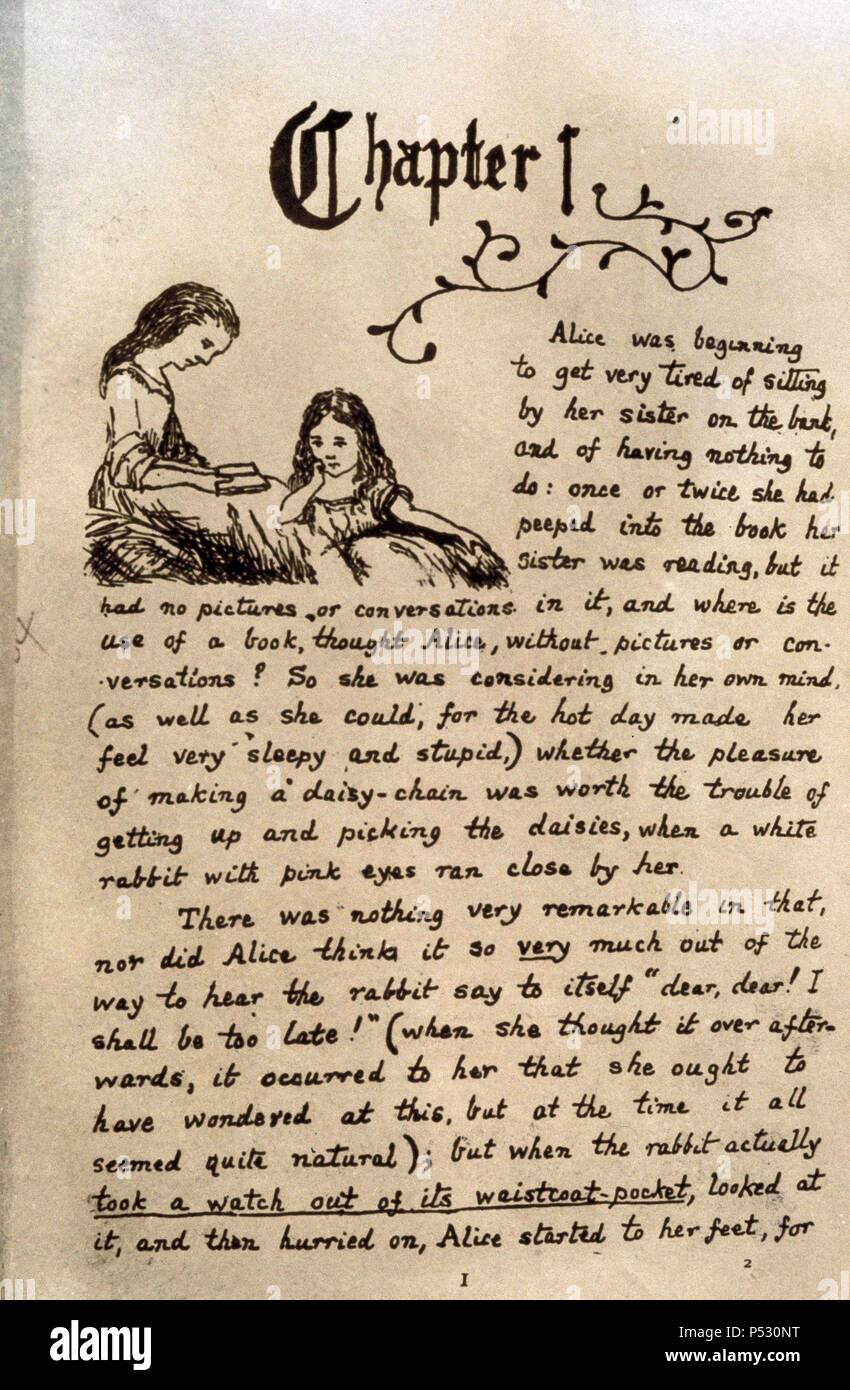 Chapter I
Alice was beginning
to get very tired of sitting
by her sister on the bank,
and of having nothing to
do: once or twice she had
peeped into the book her
sister was reading, but it
had no pictures or conversations in it, and where is the
use of a book, thought Alice, without pictures or con-
-versations? So she was considering in her own mind,
(as well as she could, for the hot day made her
feel very sleepy and stupid,) whether the pleasure
of making a daisy-chain was worth the trouble of
getting up and picking the daisies, when a white
rabbit with pink eyes ran close by her.
There was nothing very remarkable in that,
nor did Alice think it so very much out of the
way to hear the rabbit say to itself "dear, dear! I
shall be too late!" (when she thought it over after-
wards, it occurred to her that she ought to
have wondered at this, but at the time it all
seemed quite natural); but when the rabbit actually
took a watch out of its waistcoat-pocket, looked at
it, and then hurried on, Alice started to her feet, for
1
2
alamy
Image ID: P530NT
www.alamy.com